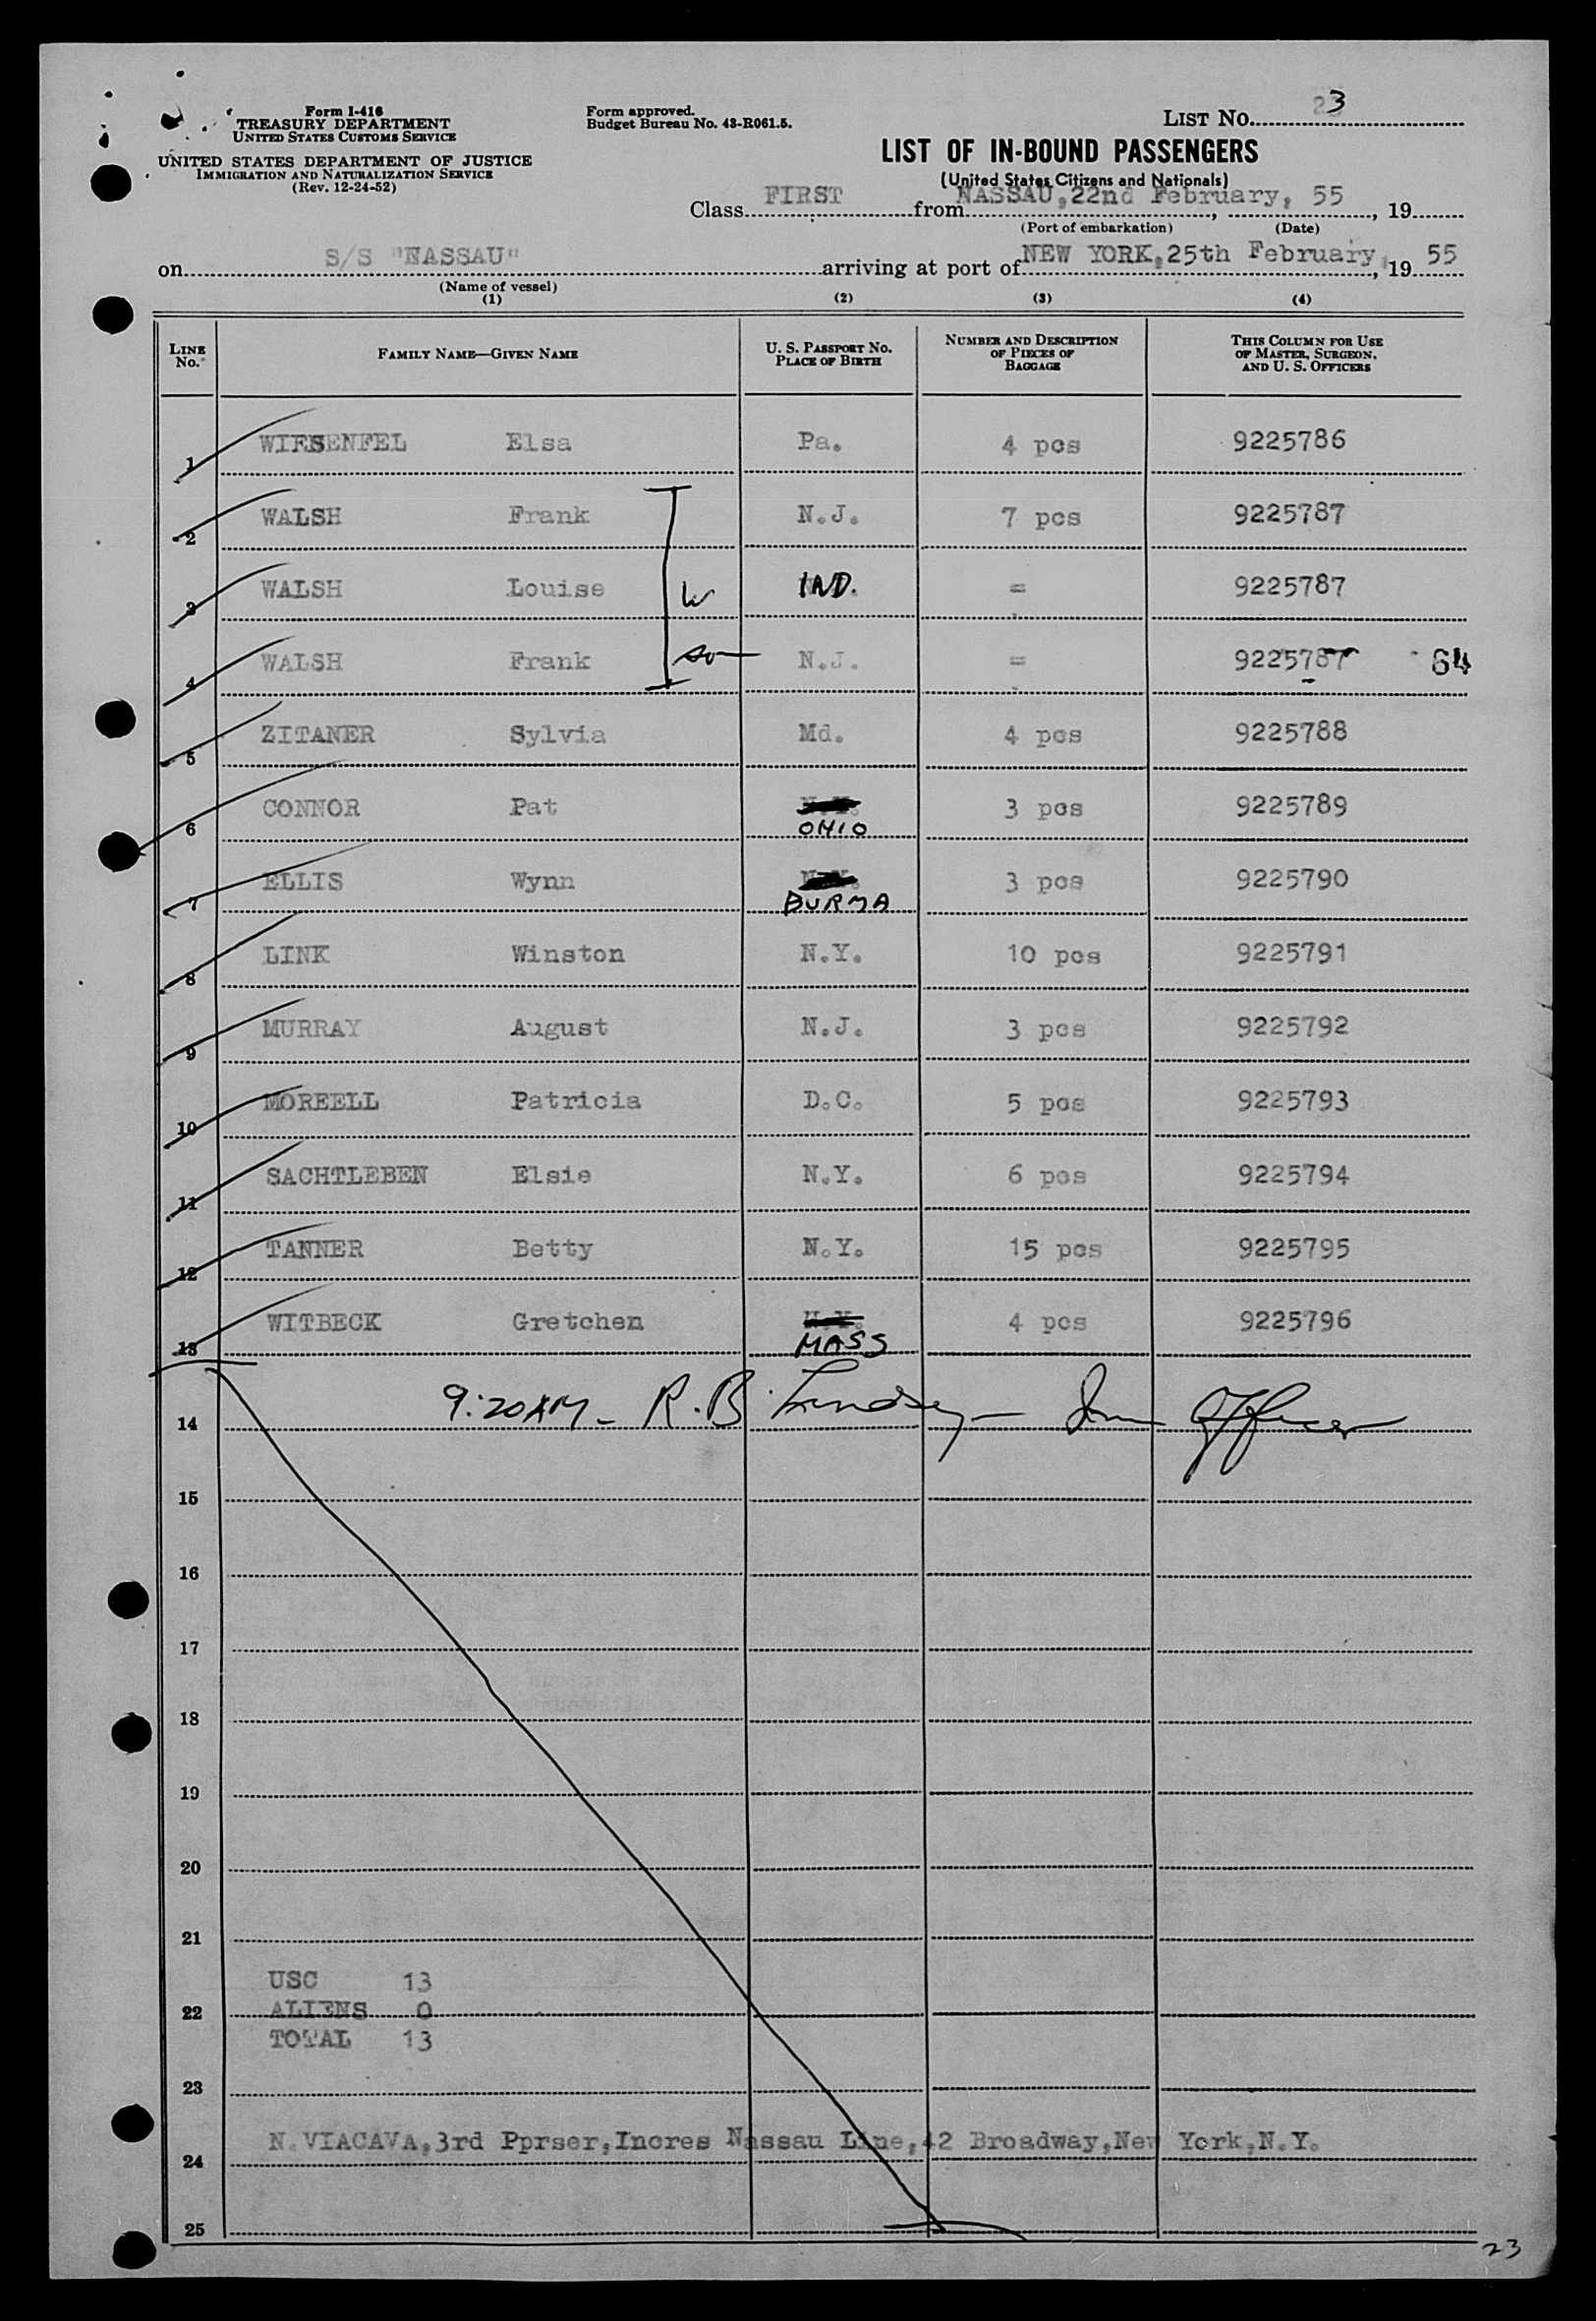 Form I-416
TREASURY DEPARTMENT
UNITED STATES CUSTOMS SERVICE
UNITED STATES DEPARTMENT OF JUSTICE
IMMIGRATION AND NATURALIZATION SERVICE
(Rev. 12-24-52)
Form approved.
Budget Bureau No. 43-R061.5.
LIST NO. 23
LIST OF IN-BOUND PASSENGERS
(United States Citizens and Nationals)
Class FIRST from NASSAU, 22nd February, 55, 19
(Port of embarkation) (Date)
on S/S "NASSAU" arriving at port of NEW YORK, 25th February, 19 55
(Name of vessel)
(1) (2) (3) (4)
LINE NO. FAMILY NAME—GIVEN NAME U. S. PASSPORT NO. PLACE OF BIRTH NUMBER AND DESCRIPTION OF PIECES OF BAGGAGE THIS COLUMN FOR USE OF MASTER, SURGEON, AND U. S. OFFICERS
1 WIESENFEL Elsa Pa. 4 pcs 9225786
2 WALSH Frank N.J. 7 pcs 9225787
3 WALSH Louise W IND. = 9225787
4 WALSH Frank son N.J. = 9225787 64
5 ZITANER Sylvia Md. 4 pcs 9225788
6 CONNOR Pat OHIO 3 pcs 9225789
7 ELLIS Wynn BURMA 3 pcs 9225790
8 LINK Winston N.Y. 10 pcs 9225791
9 MURRAY August N.J. 3 pcs 9225792
10 MOREELL Patricia D.C. 5 pcs 9225793
11 SACHTLEBEN Elsie N.Y. 6 pcs 9225794
12 TANNER Betty N.Y. 15 pcs 9225795
13 WITBECK Gretchen MASS 4 pcs 9225796
14 9:20 AM – R.B. Lindsey – Imm Officer
15
16
17
18
19
20
21
USC 13
22 ALIENS 0
TOTAL 13
23
N.VIACAVA,3rd Pprser,Incres Nassau Line,42 Broadway,New York,N.Y.
24
25
23